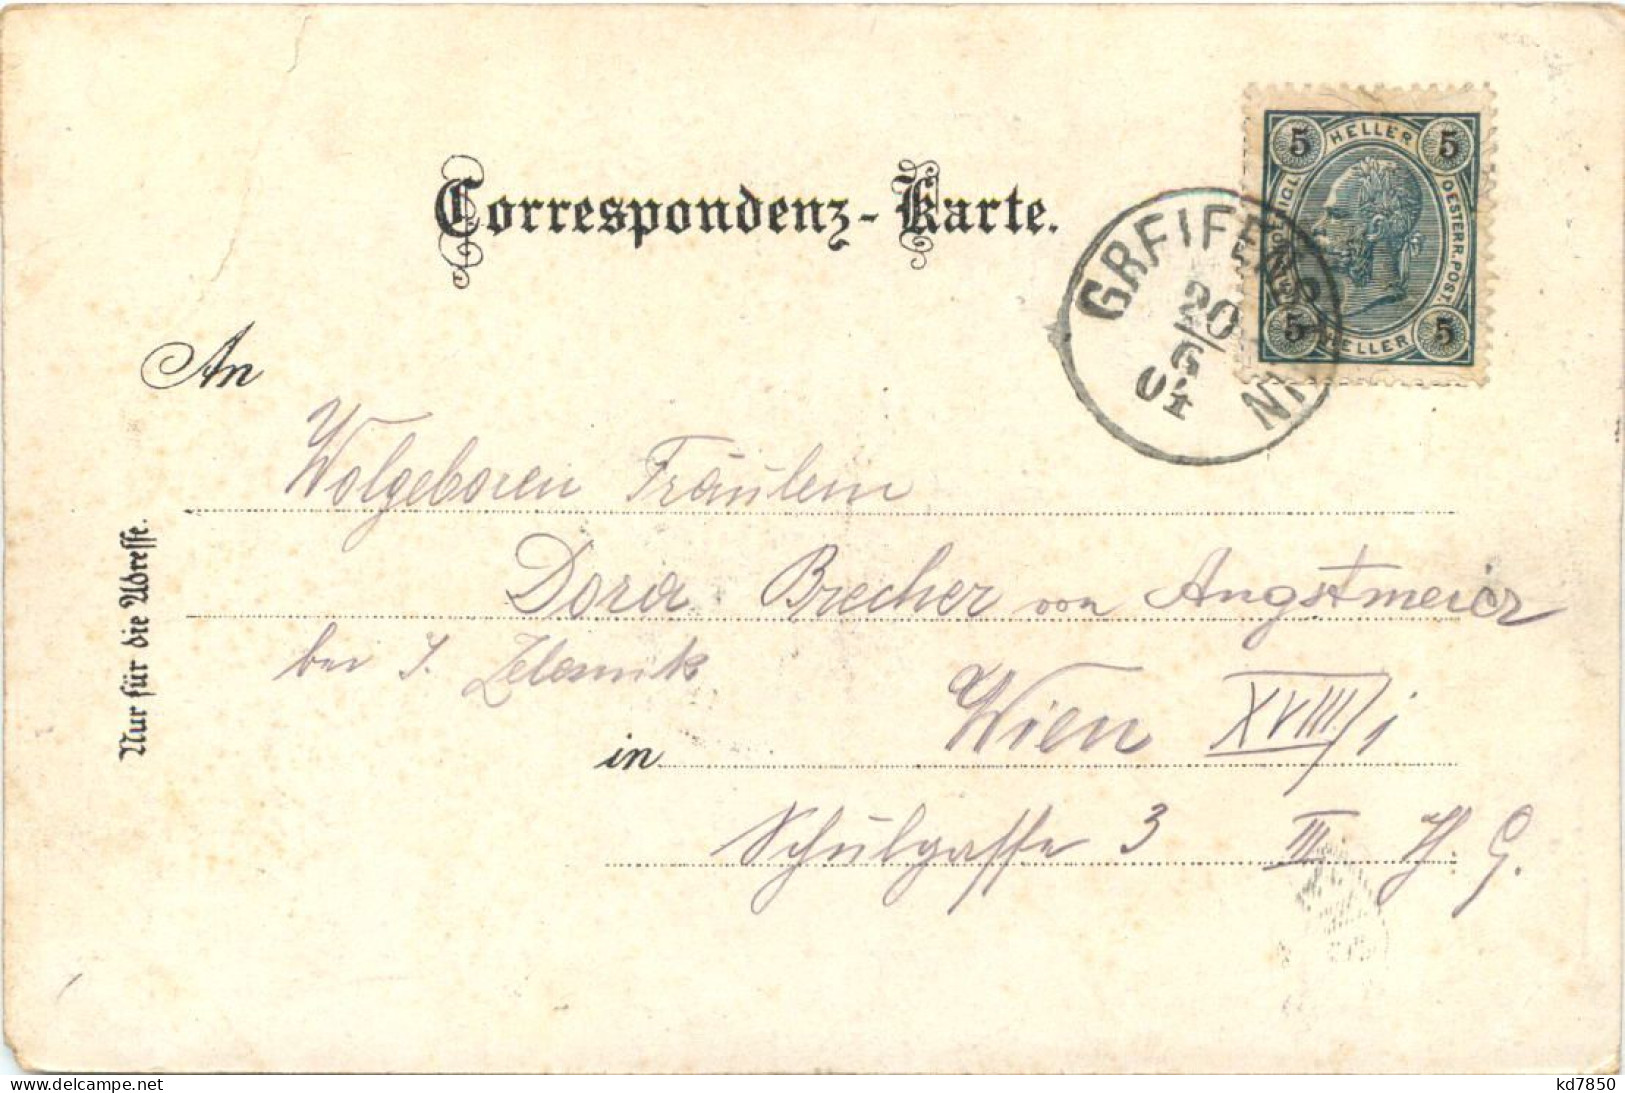 Correspondenz-Karte.
5 HELLER 5
OESTERR. POST.
5 HELLER 5
GREIFEN
20
6
04
An
Wolgeboren Fräulein
Dora Brecher von Angstmeier
bei
in Wien XVIII/i
Schulgasse 3 III H. G.
Nur für die Adresse.
www.delcampe.net
kd7850